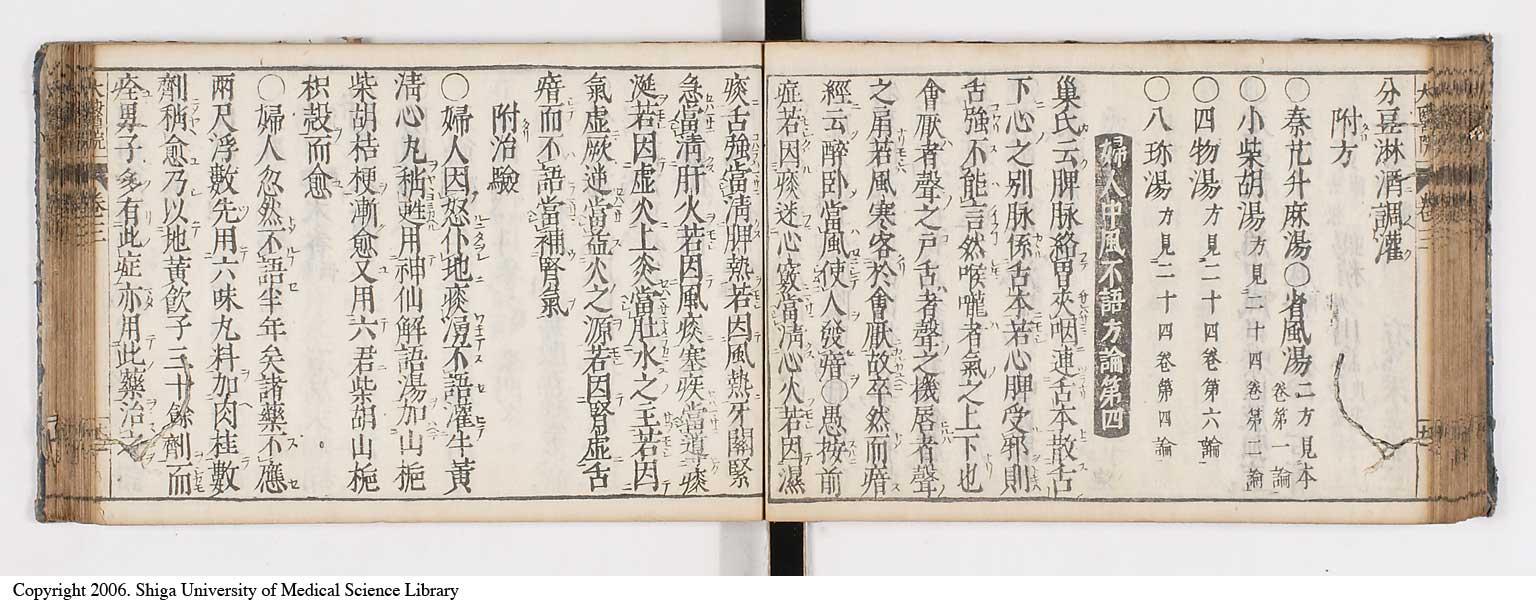 分甚淋漓調灌
附方
〇秦艽升麻湯〇省風湯二方見本卷第一論
〇小柴胡湯方見二十四卷第二論
〇四物湯方見二十四卷第六論
〇八珎湯方見二十四卷第四論
婦人中風不語方論第四
巢氏云脾脉絡胃夾咽連舌本散舌
下心之別脉係舌本若心脾受邪則
舌強不能言然喉嚨者氣之上下也
會厭者聲之戸舌者聲之機唇者聲
之扇若風寒客於會厭故卒然而瘖
經云醉卧當風使人發瘖〇愚按前
症若因痰迷心竅當淸心火若因濕
痰舌強當淸脾熱若因風熱牙關緊
急當淸肝火若因風痰塞疾當導痰
涎若因虚火上炎當壯水之主若因
氣虚厥逆當益火之源若因腎虚舌
瘖而不語當補腎氣
附治驗
〇婦人因怒仆地痰湧不語灌牛黃
淸心丸稍甦用神仙解語湯加山梔
柴胡桔梗漸愈又用六君柴胡山梔
枳殻而愈
〇婦人忽然不語半年矣諸藥不應
兩尺浮數先用六味丸料加肉桂數
劑稍愈乃以地黃飮子三十餘劑而
痊男子多有此症亦用此藥治之
Copyright 2006. Shiga University of Medical Science Library